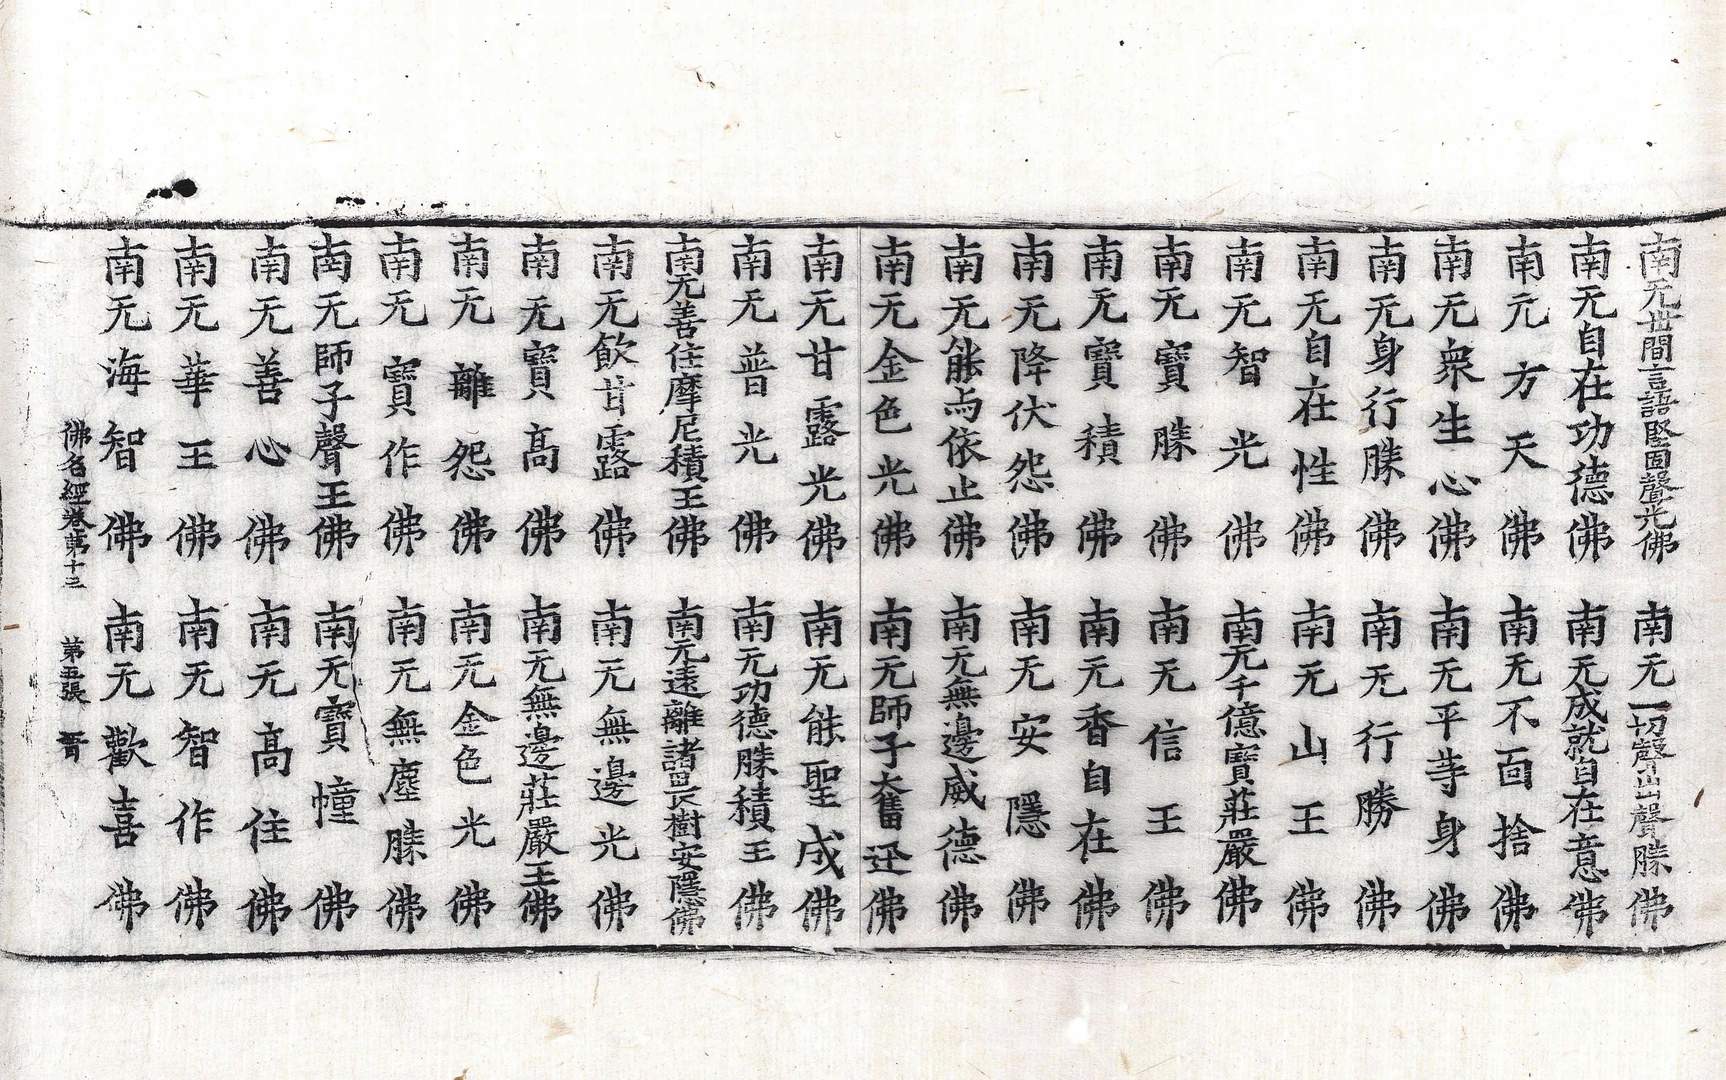 南无世間言語堅固聲光佛 南无一切聲山聲勝佛
南无自在功德佛 南无成就自在意佛
南无方天佛 南无不面捨佛
南无衆生心佛 南无平等身佛
南无身行勝佛 南无行勝佛
南无自在性佛 南无山王佛
南无智光佛 南无千億寶莊嚴佛
南无寶勝佛 南无信王佛
南无寶積佛 南无香自在佛
南无降伏怨佛 南无安隱佛
南无能与依止佛 南无無邊威德佛
南无金色光佛 南无師子奮迅佛
南无甘露光佛 南无能聖成佛
南无普光佛 南无功德勝積王佛
南无善住摩尼積王佛 南无遠離諸畏樹安隱佛
南无飲甘露佛 南无無邊光佛
南无寶高佛 南无無邊莊嚴王佛
南无離怨佛 南无金色光佛
南无寶作佛 南无無塵勝佛
南无師子聲王佛 南无寶幢佛
南无善心佛 南无高住佛
南无華王佛 南无智作佛
南无海智佛 南无歡喜佛
佛名經卷第十三 第五張